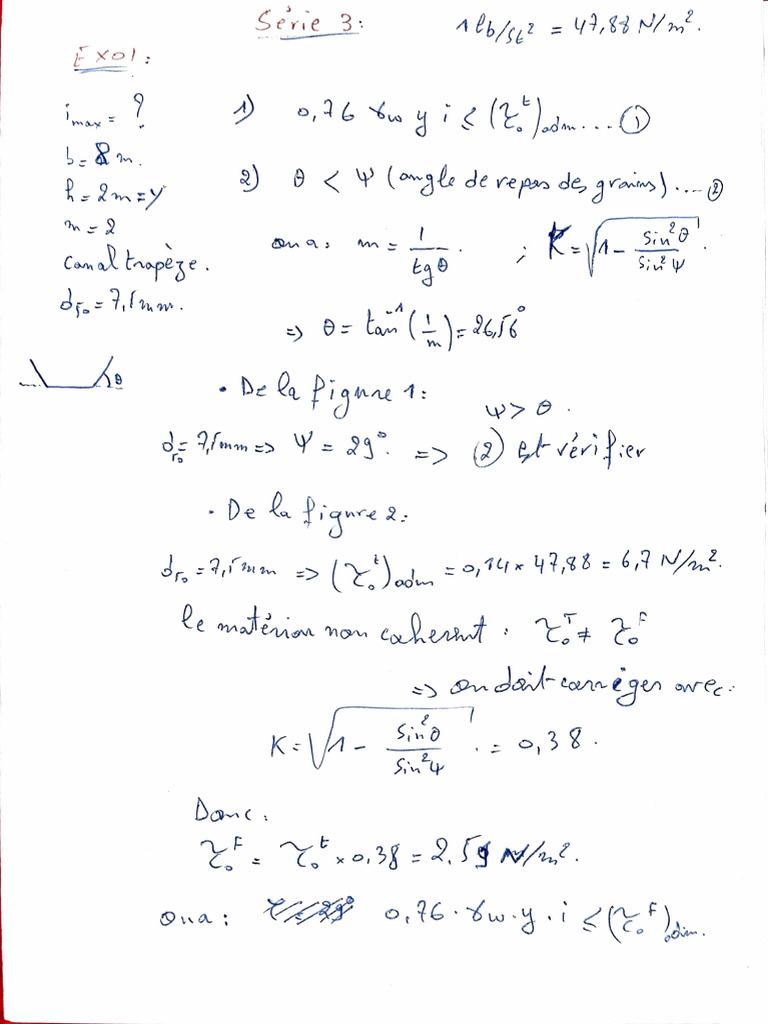 Série 3:
1 lb/ft² = 47,88 N/m².
Exo1:
i_max = ?
b = 8 m.
h = 2m = y
m = 2
canal trapèze.
d₅₀ = 7,5 mm.
θ
1) 0,76 γw y i ≤ (τ₀ᵗ)adm .... ①
2) θ < Ψ (angle de repos des grains) .... ②
ona: m = 1/tgθ . ; K = √(1 - sin²θ/sin²Ψ) .
=> θ = tan⁻¹(1/m) = 26,56°
• De la figure 1:
Ψ > θ .
d₅₀ = 7,5 mm => Ψ = 29°. => ② est vérifier
• De la figure 2:
d₅₀ = 7,5 mm => (τ₀ᵗ)adm = 0,14 × 47,88 = 6,7 N/m².
le matériau non caherent : τ₀ᵀ ≠ τ₀ᶠ
=> on doit corriger avec:
K = √(1 - sin²θ/sin²Ψ) . = 0,38 .
Donc:
τ₀ᶠ = τ₀ᵗ × 0,38 = 2,59 N/m².
Ona: 0,76 . γw . y . i ≤ (τ₀ᶠ)adm.